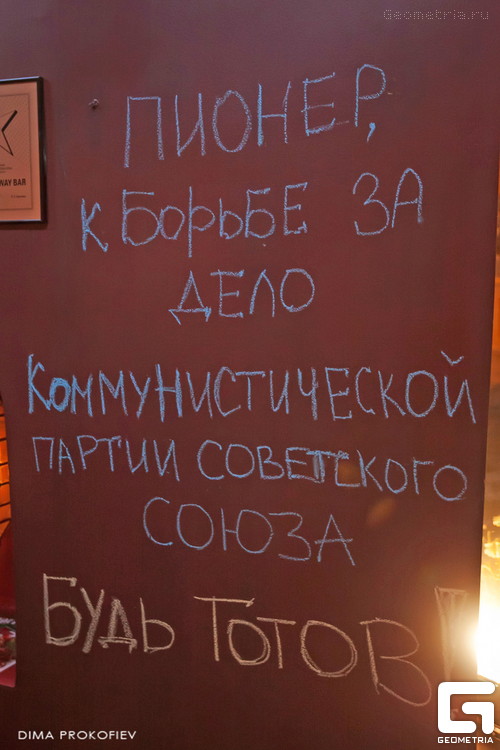 Geometria.ru
ПИОНЕР,
К БОРЬБЕ ЗА
ДЕЛО
КОММУНИСТИЧЕСКОЙ
ПАРТИИ СОВЕТСКОГО
СОЮЗА
БУДЬ ГОТОВ!
WAY BAR
DIMA PROKOFIEV
GEOMETRIA